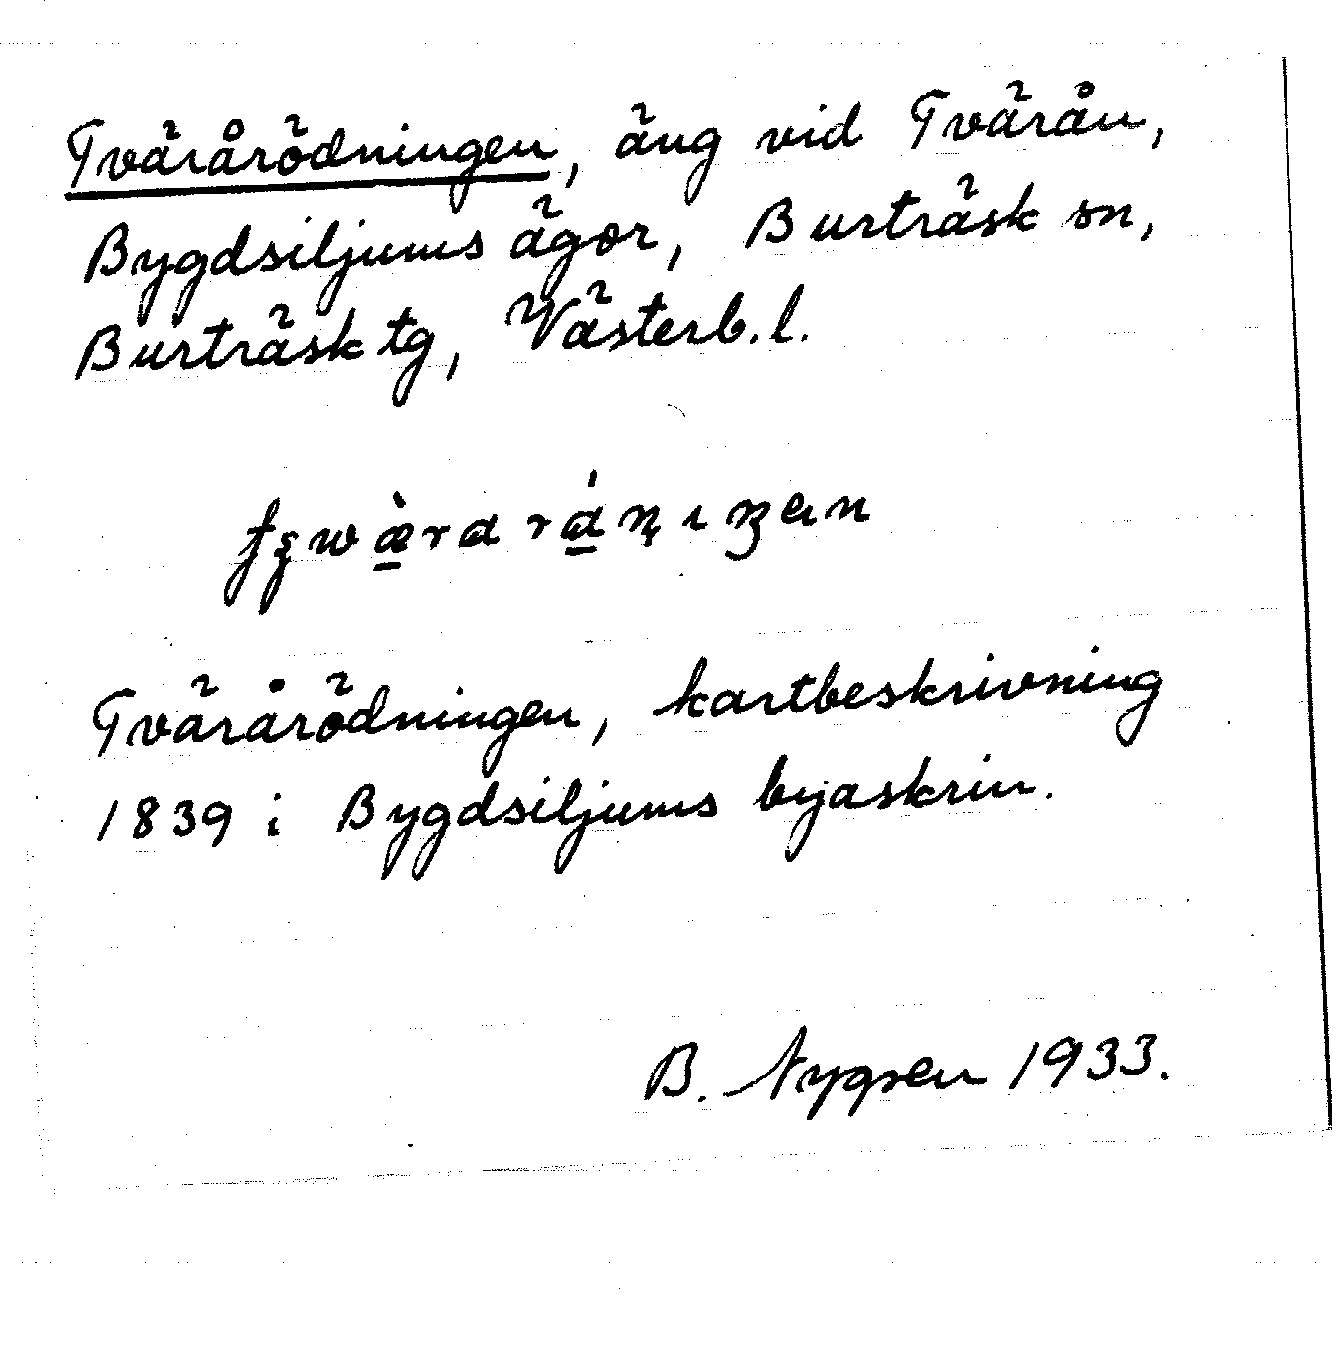 Tvärårödningen, äng vid Tvärån,
Bygdsiljums ägor, Burträsk sn,
Burträsk tg, Västerb. l.
Tvärårödningen, kartbeskrivning
1839 i Bygdsiljums byaskrin.
B. Nygren 1933.